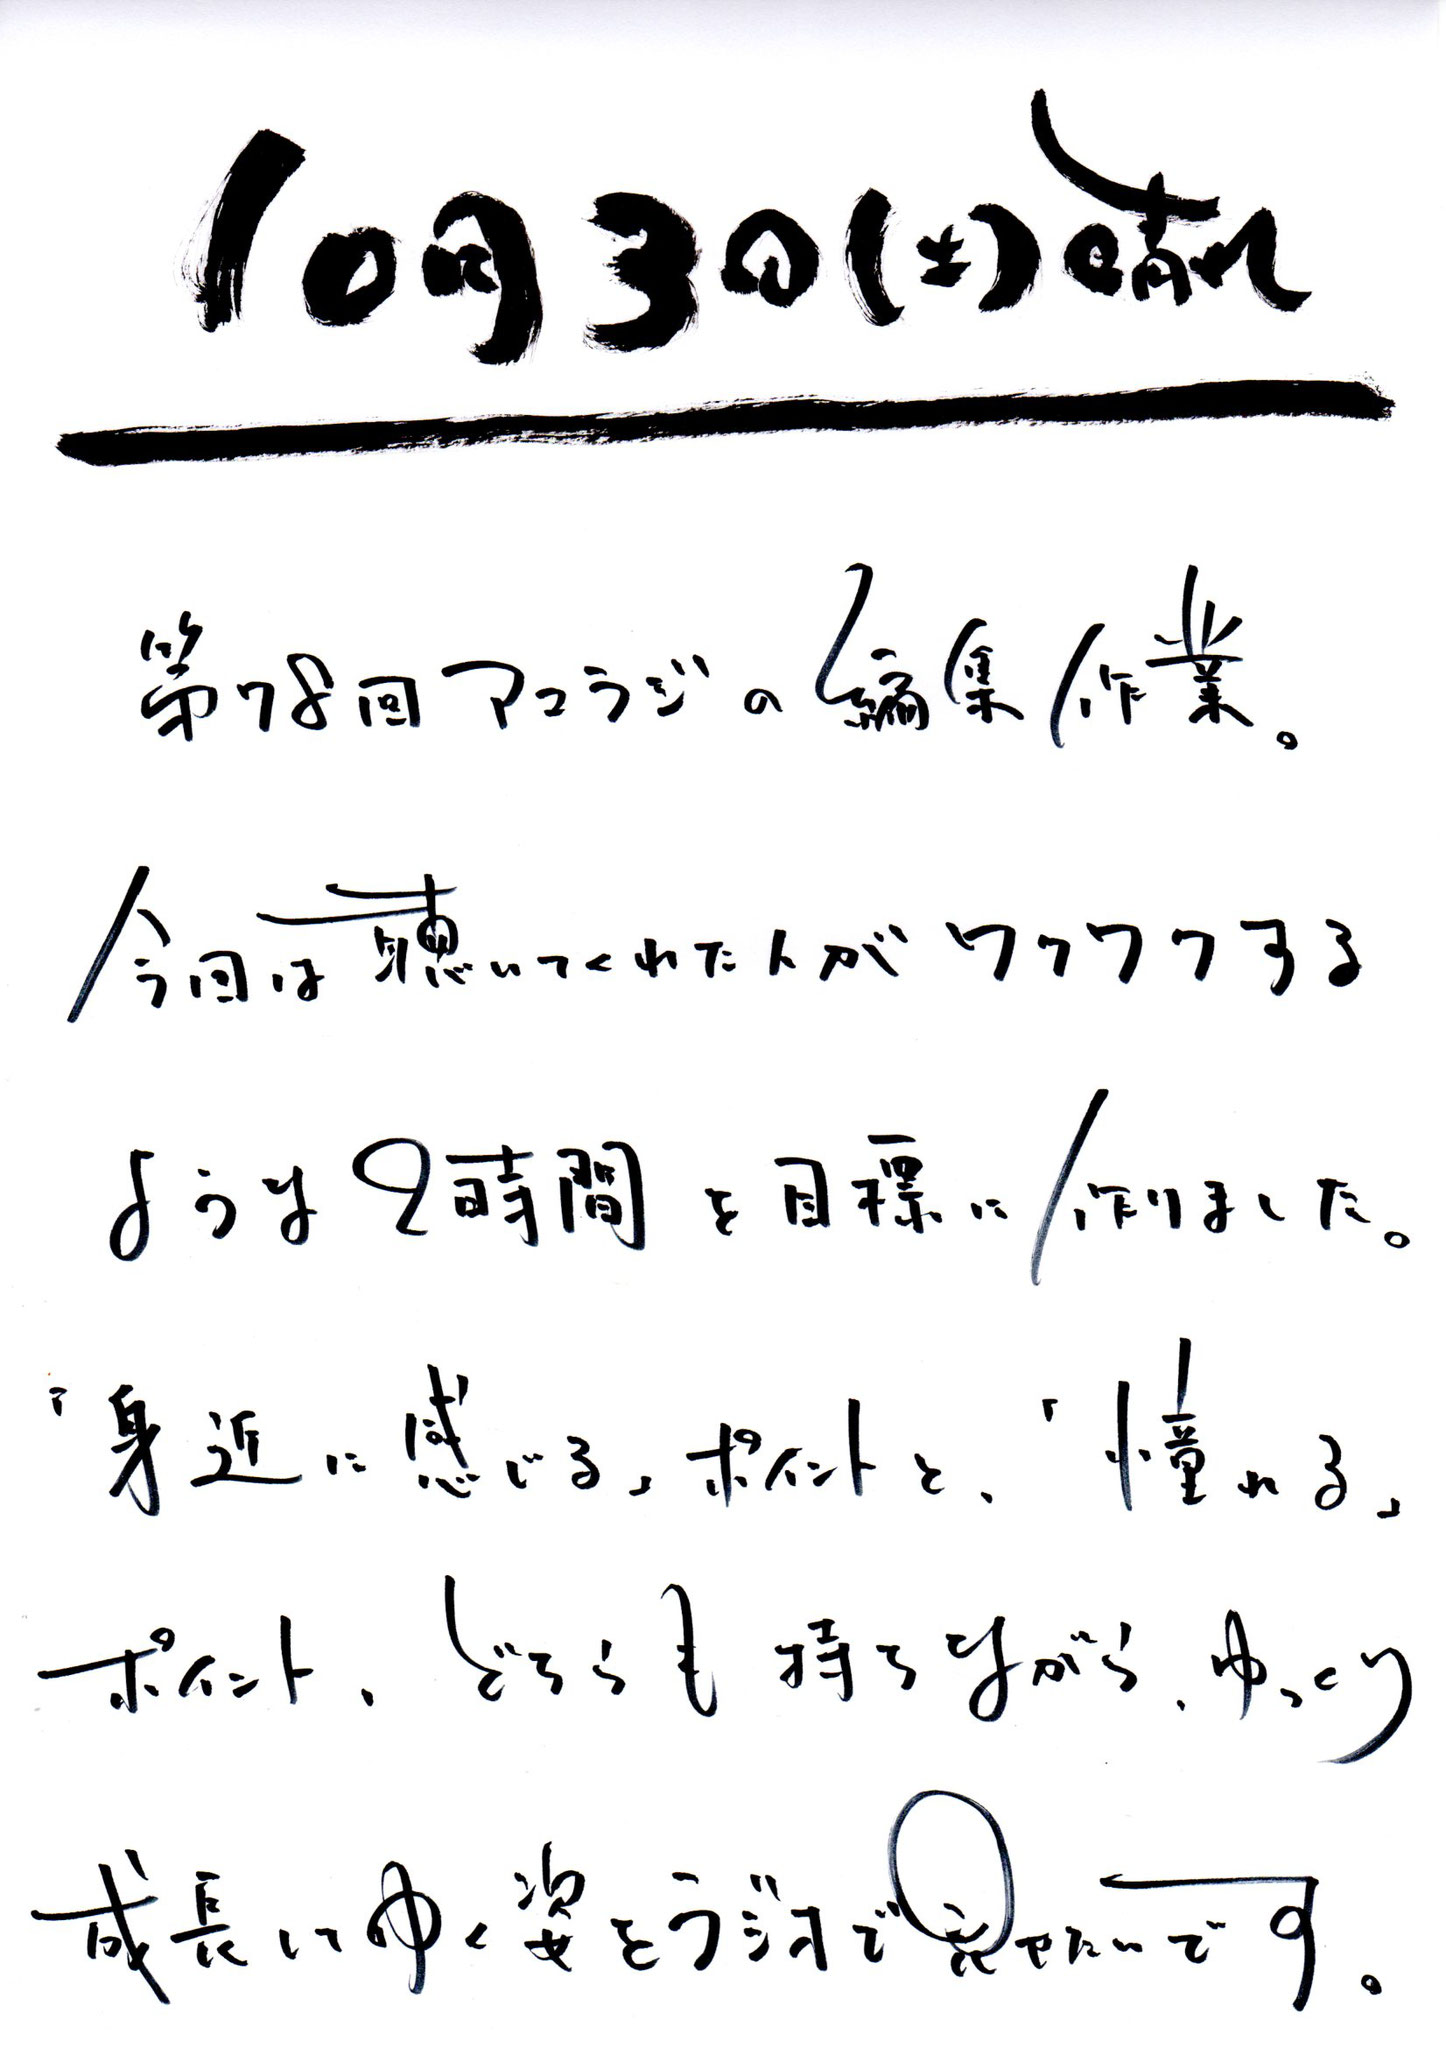 10月3日(土)晴れ
第78回アコラジの編集作業。
今回は聴いてくれた人がワクワクする
ような2時間を目標に作りました。
「身近に感じる」ポイントと、「憧れる」
ポイント、どちらも持ちながら、ゆっくり
成長してゆく姿をラジオで見せたいです。